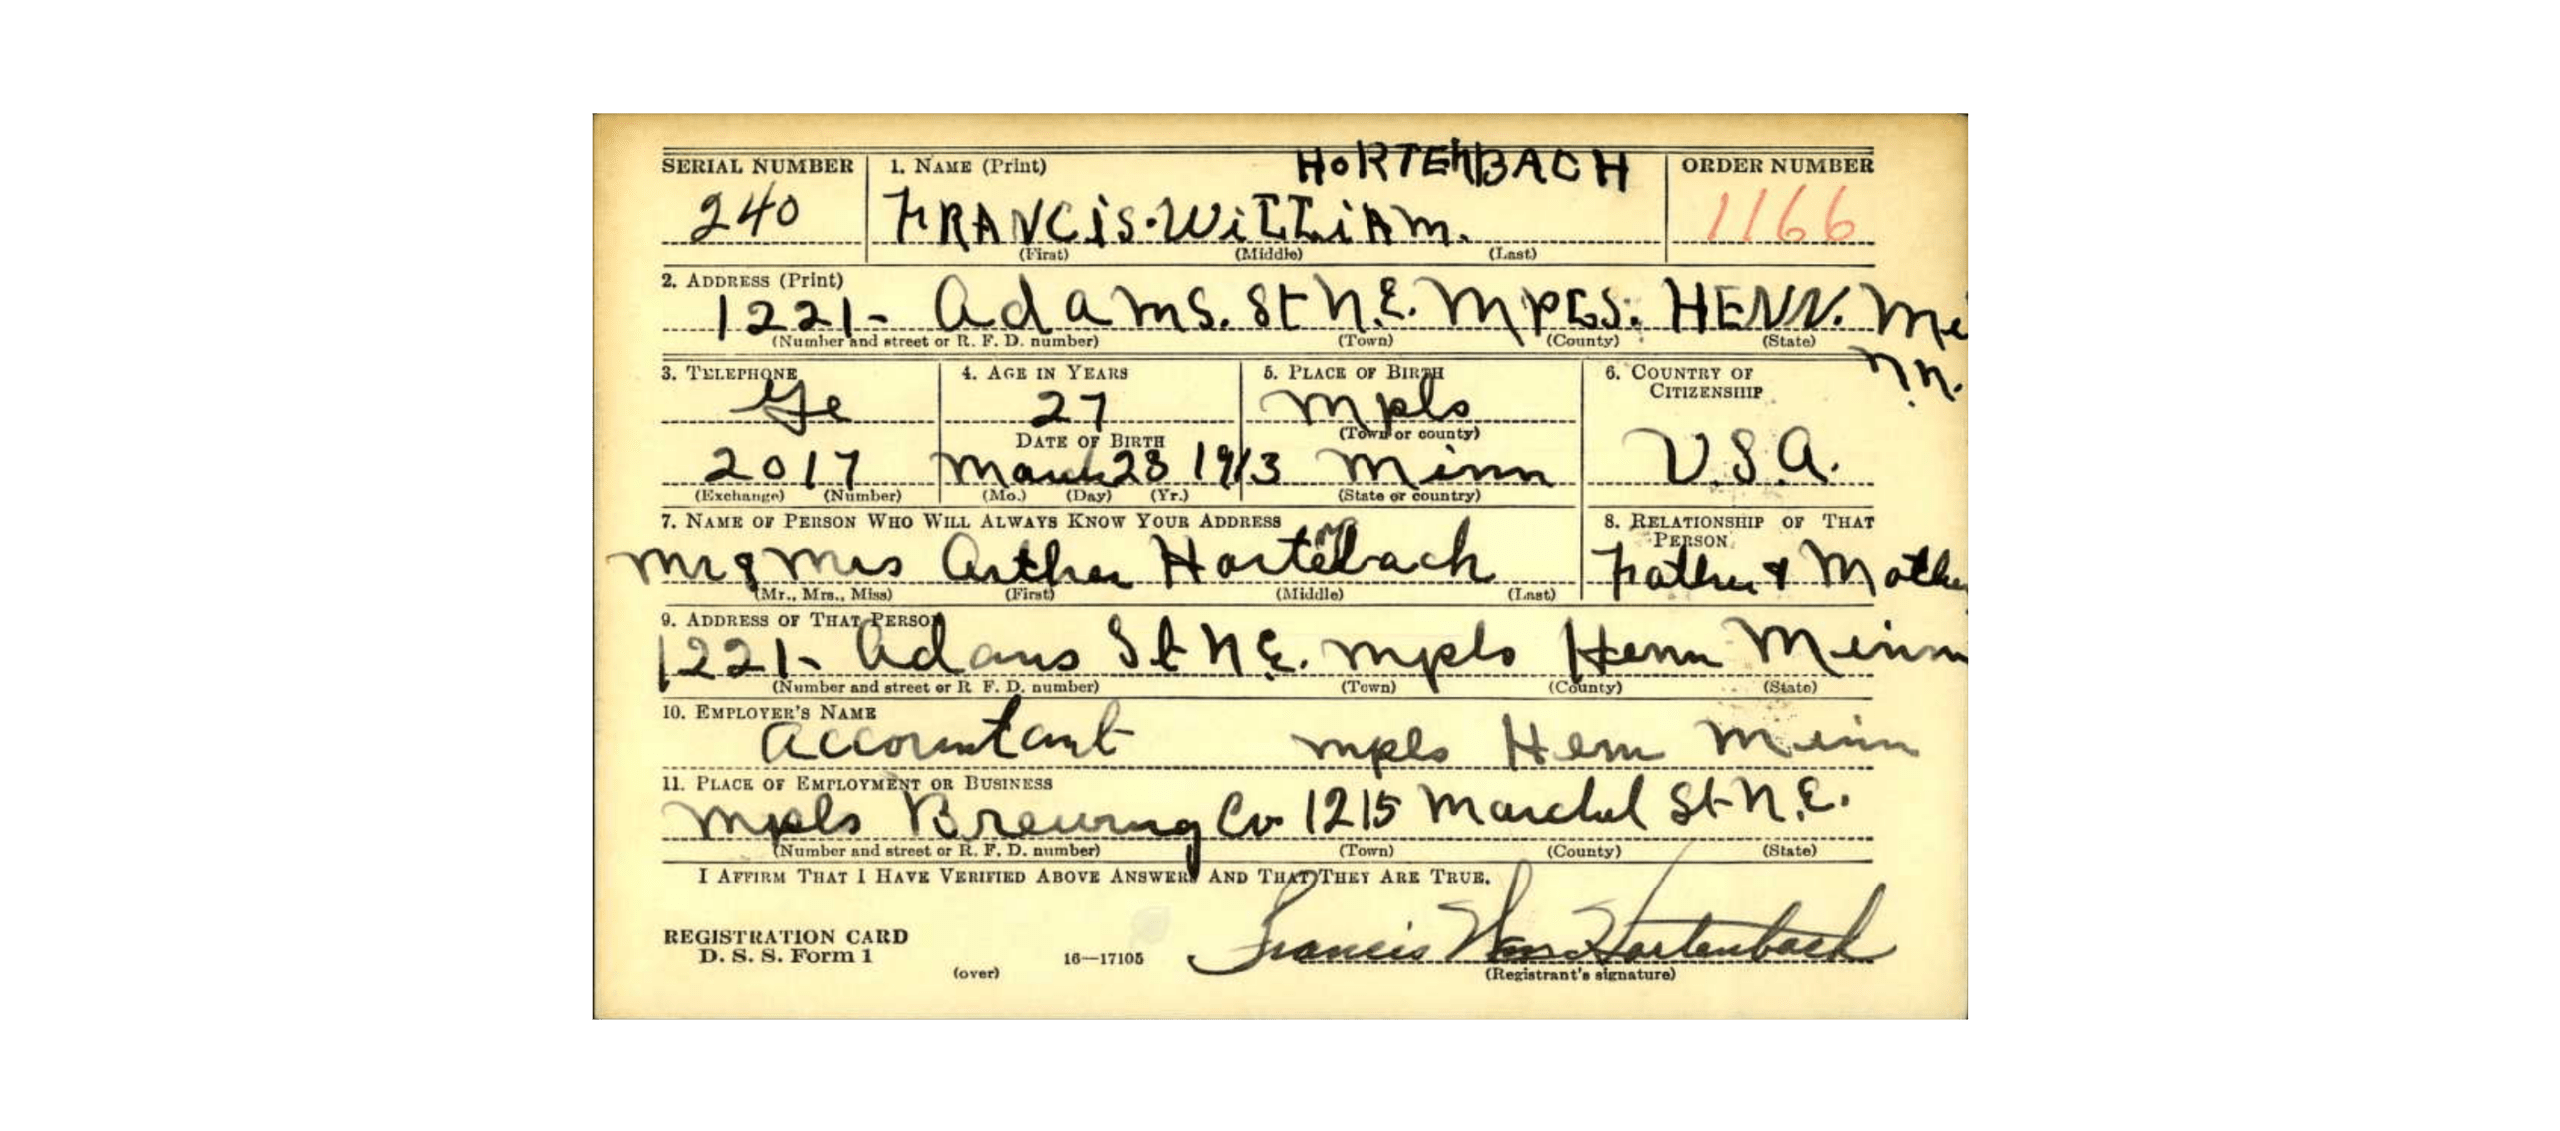 SERIAL NUMBER 1. NAME (Print) HORTENBACH ORDER NUMBER
240 FRANCIS. WILLIAM. 1166
(First) (Middle) (Last)
2. ADDRESS (Print)
1221- Adams. St N.E. MPLS. HENN. Mi
nn.
(Number and street or R. F. D. number) (Town) (County) (State)
3. TELEPHONE 4. AGE IN YEARS 5. PLACE OF BIRTH 6. COUNTRY OF
CITIZENSHIP
Ge 27 Mpls
DATE OF BIRTH (Town or county)
2017 March 28 1913 Minn U.S.A.
(Exchange) (Number) (Mo.) (Day) (Yr.) (State or country)
7. NAME OF PERSON WHO WILL ALWAYS KNOW YOUR ADDRESS 8. RELATIONSHIP OF THAT
PERSON
Mr & Mrs Arthur Hortenbach Father & Mother
(Mr., Mrs., Miss) (First) (Middle) (Last)
9. ADDRESS OF THAT PERSON
1221- Adams St N.E. Mpls Henn Minn
(Number and street or R. F. D. number) (Town) (County) (State)
10. EMPLOYER'S NAME
Accountant Mpls Henn Minn
11. PLACE OF EMPLOYMENT OR BUSINESS
Mpls Brewing Co 1215 St N.E.
(Number and street or R. F. D. number) (Town) (County) (State)
I AFFIRM THAT I HAVE VERIFIED ABOVE ANSWERS AND THAT THEY ARE TRUE.
REGISTRATION CARD Francis Hortenbach
D. S. S. Form 1 (over) 16—17105 (Registrant's signature)